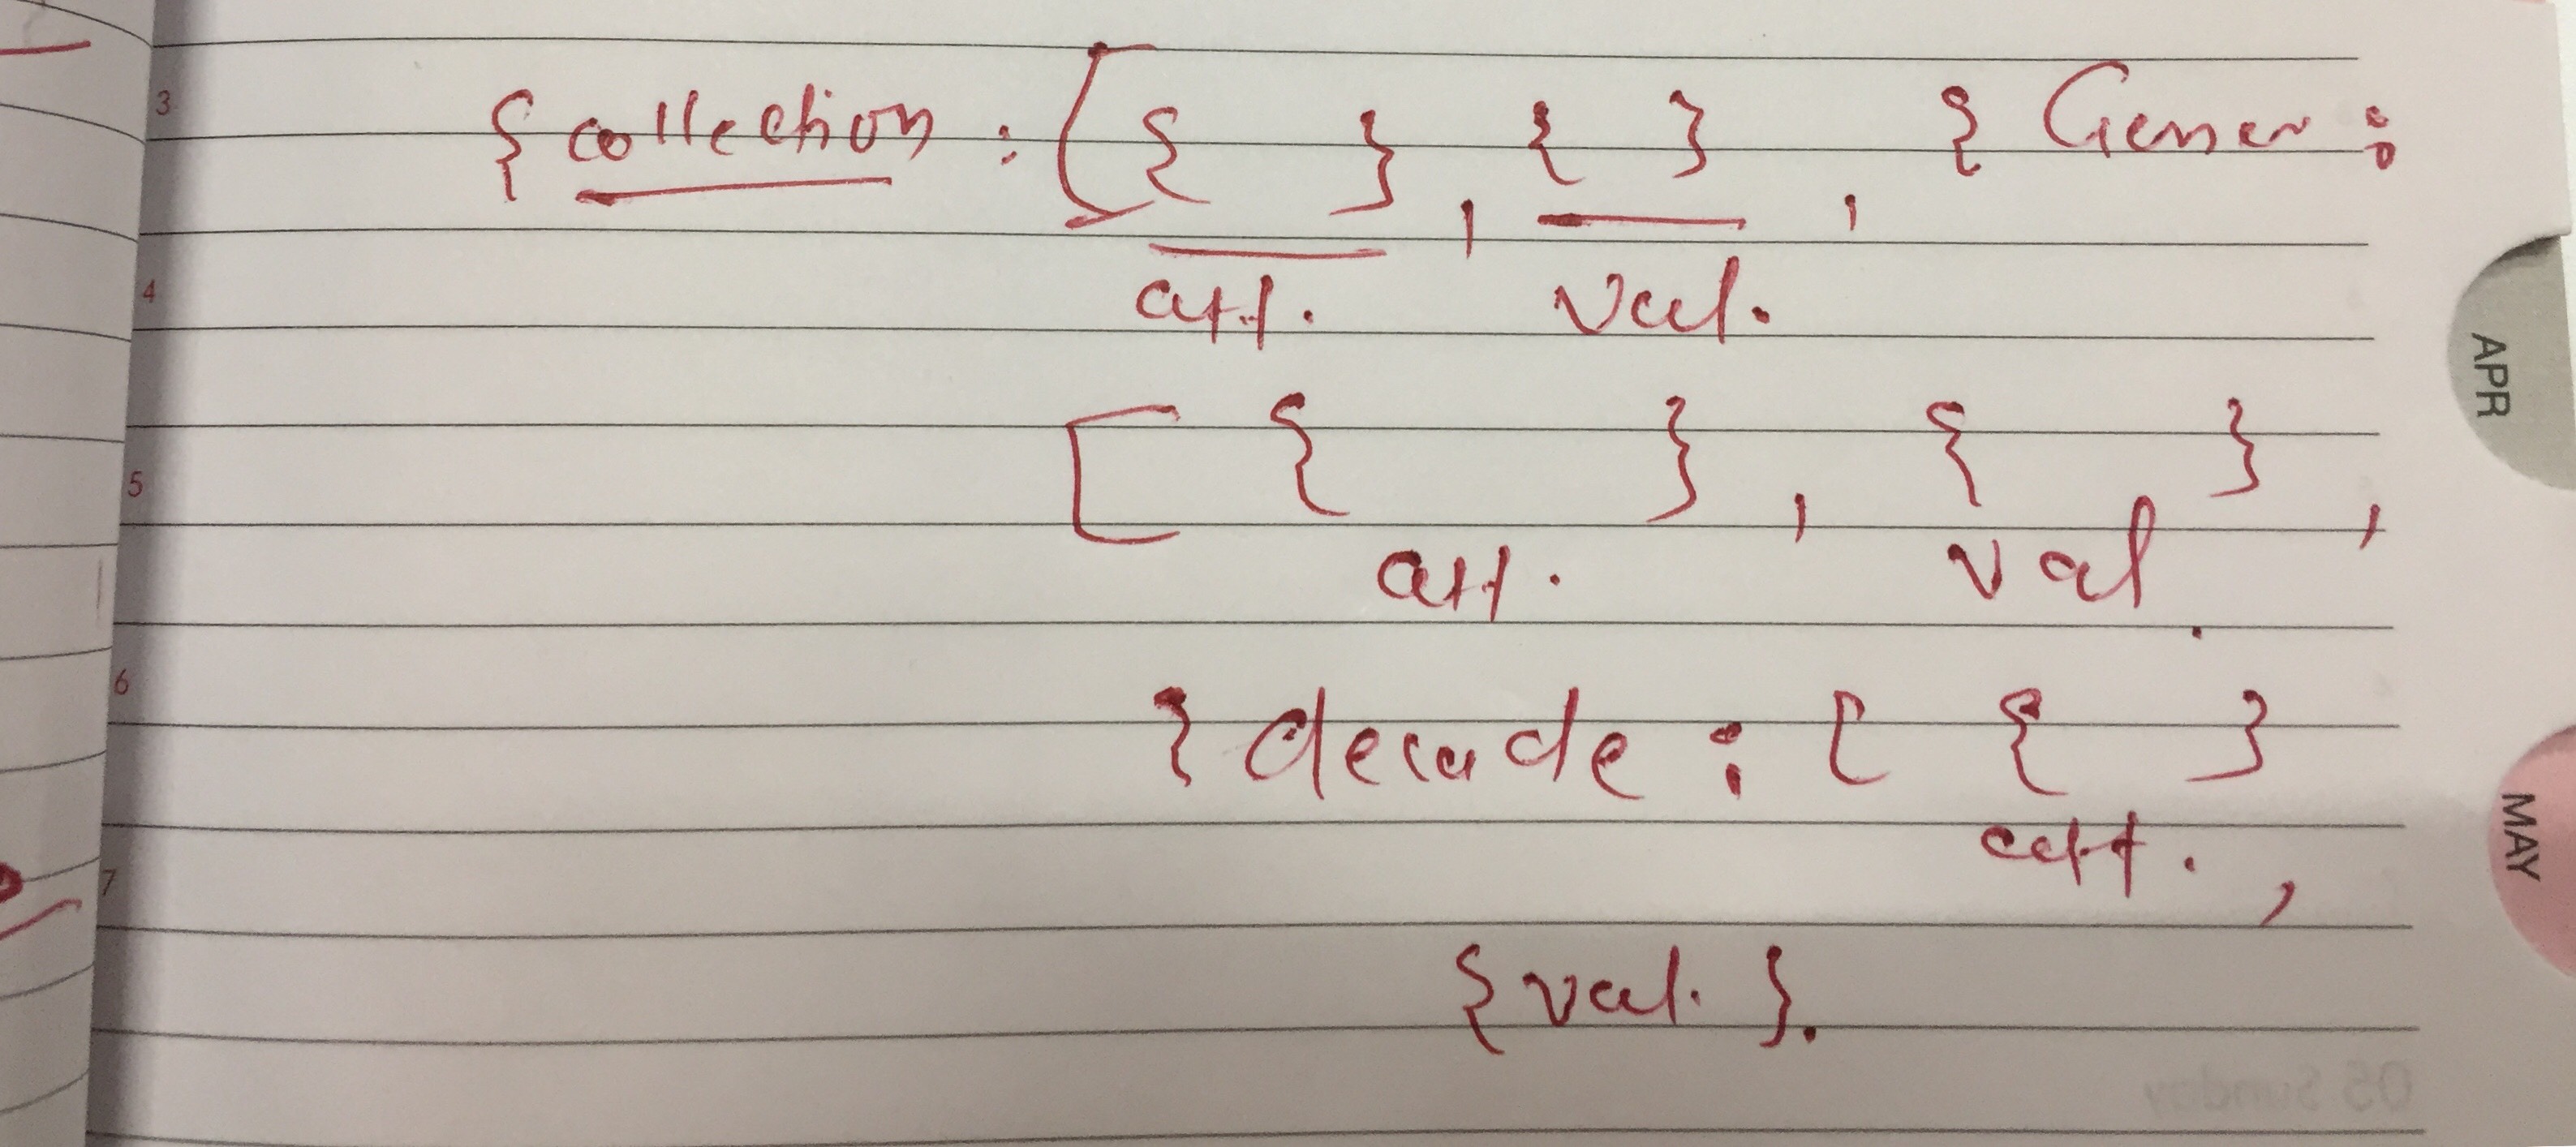 3 { collection : [ { } , { } , { Gener :
att. val.
4
5 [ { } , { } ,
att. val.
6 { decade : [ { }
att. ,
7
{ val. }.
APR
MAY
05 Sunday